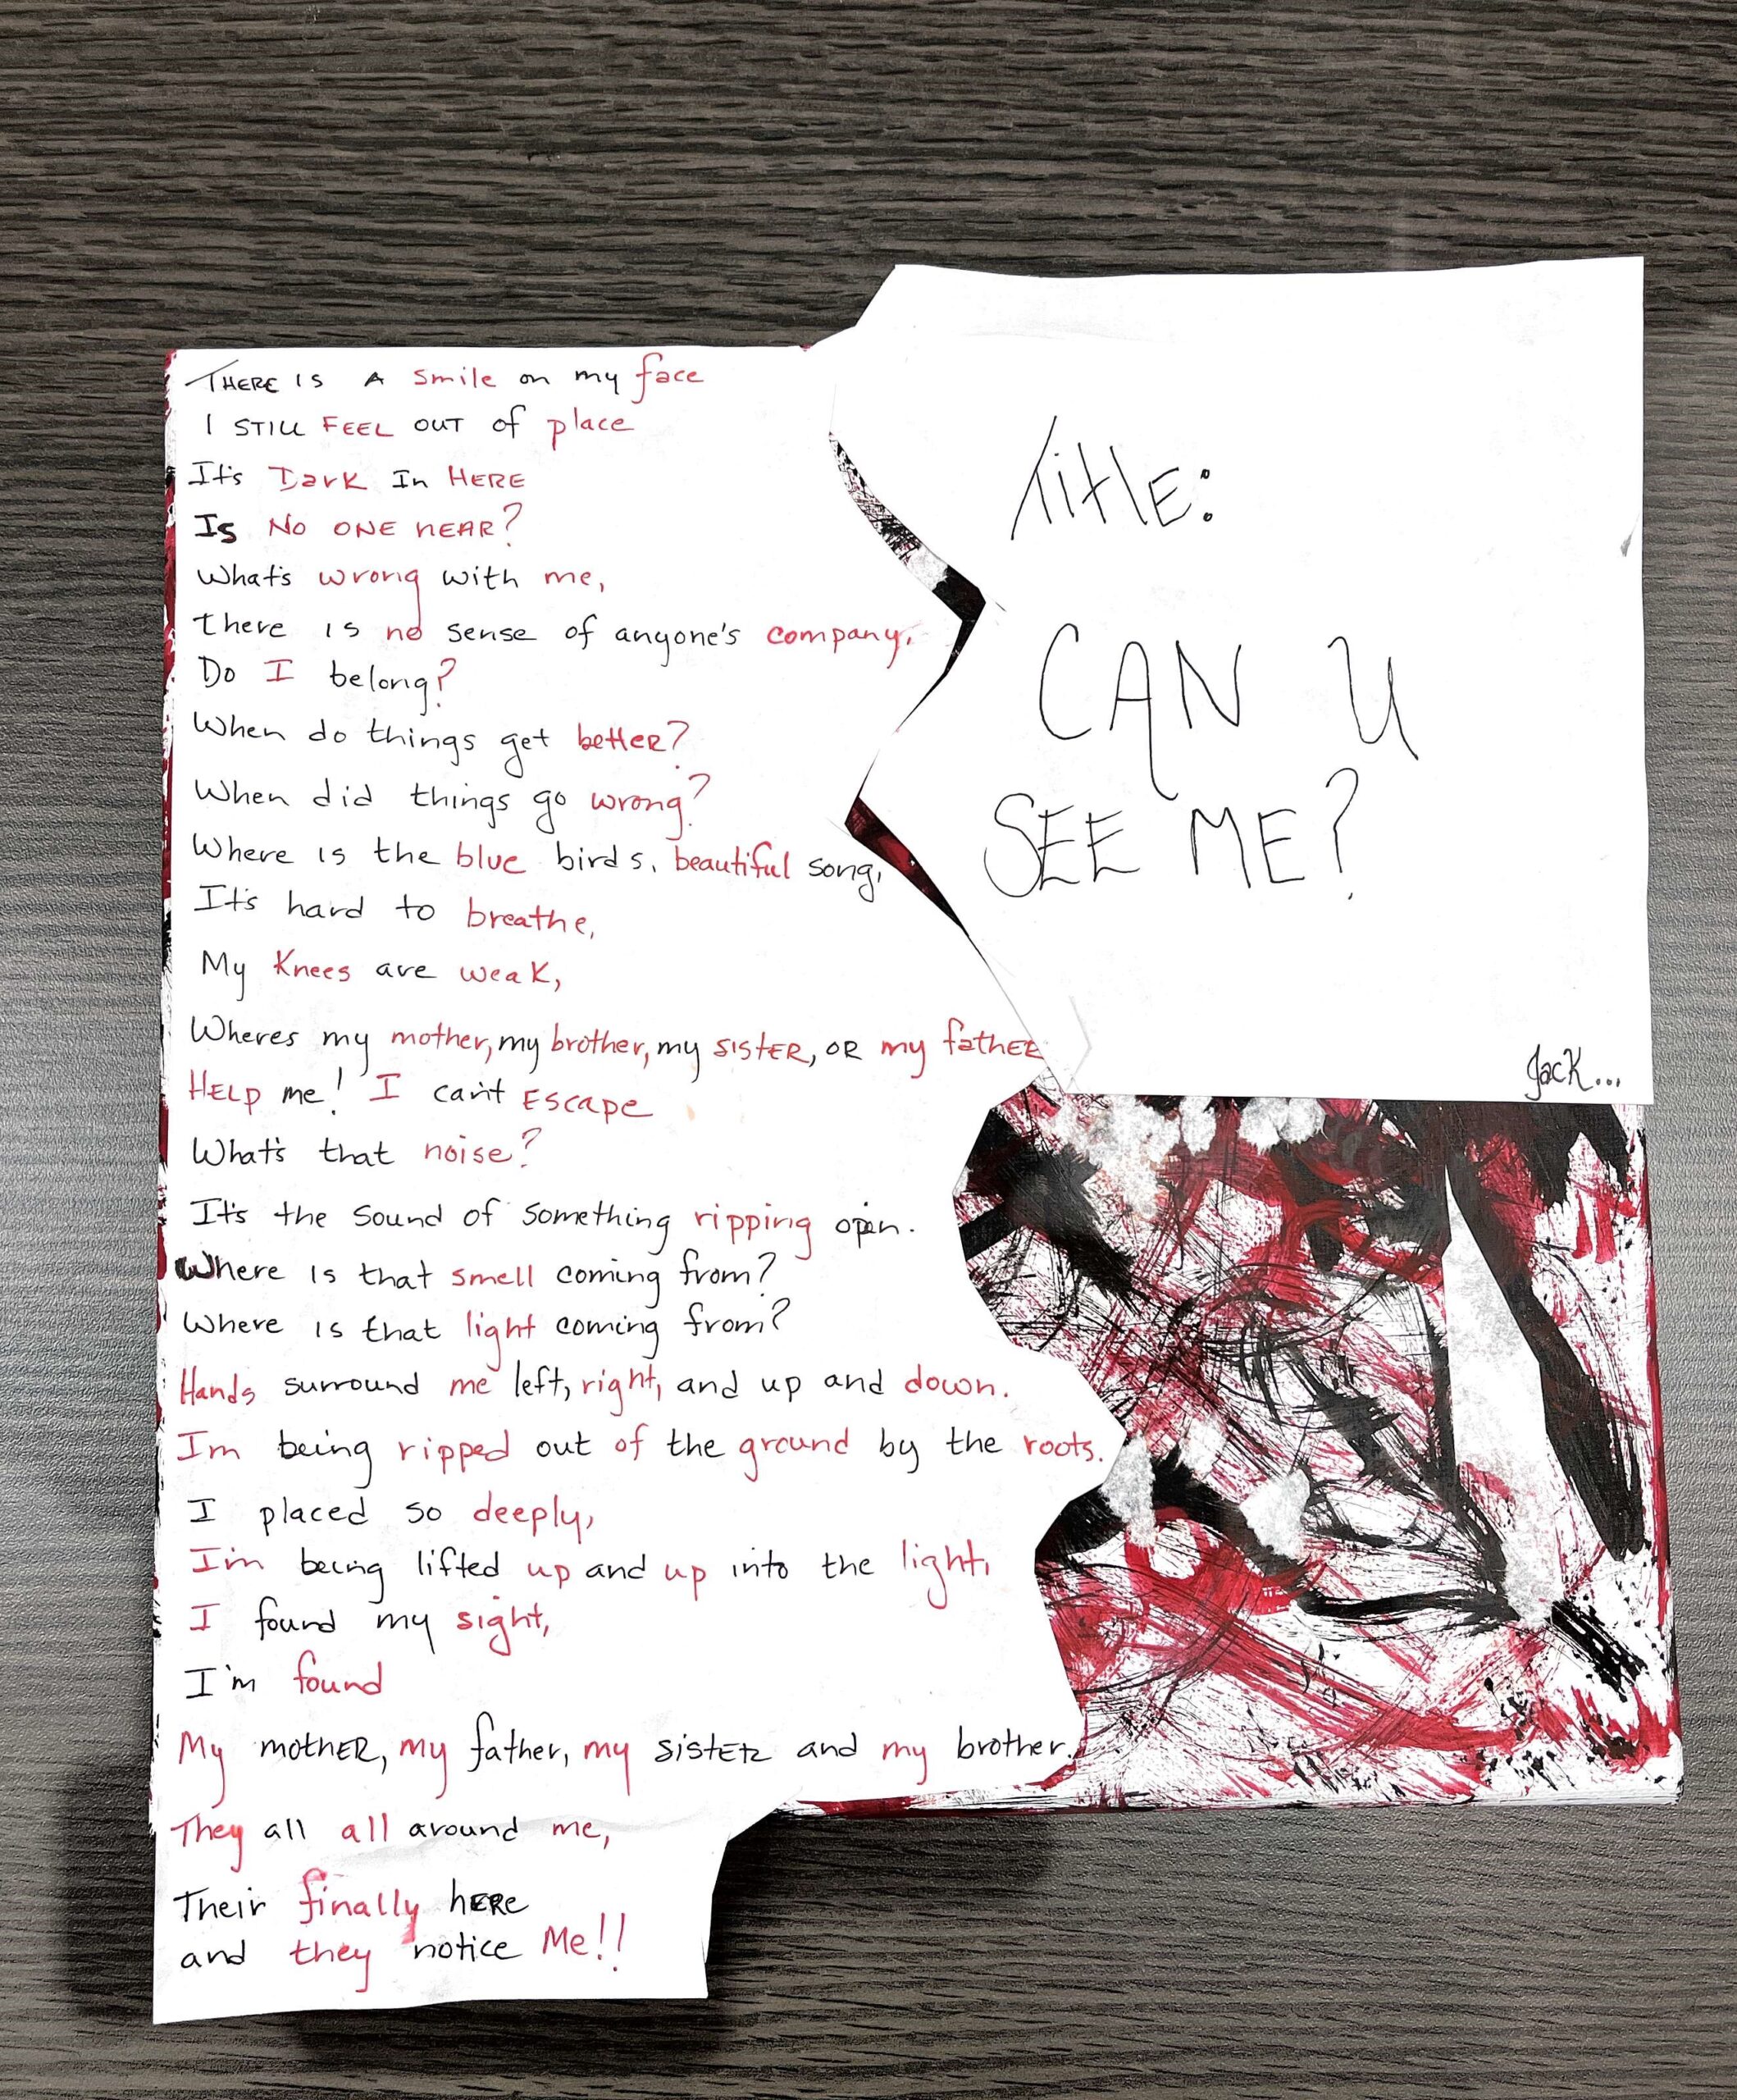 THERE IS A smile on my face
I STILL FEEL OUT of place
It's Dark In HERE
Is No ONE NEAR?
What's wrong with me,
there is no sense of anyone's company.
Do I belong?
When do things get better?
When did things go wrong?
Where is the blue birds. beautiful song,
It's hard to breathe,
My Knees are weak,
Wheres my mother, my brother, my SISTER, OR my fathER
HELP me! I can't Escape
What's that noise?
It's the Sound of Something ripping open.
Where is that smell coming from?
Where is that light coming from?
Hands surround me left, right, and up and down.
Im being ripped out of the ground by the roots.
I placed so deeply,
I'm being lifted up and up into the light,
I found my sight,
I'm found
My mothER, my father, my sistER and my brother.
They all all around me,
Their finally hERe
and they notice Me!!
TitlE:
CAN U
SEE ME?
JacK...